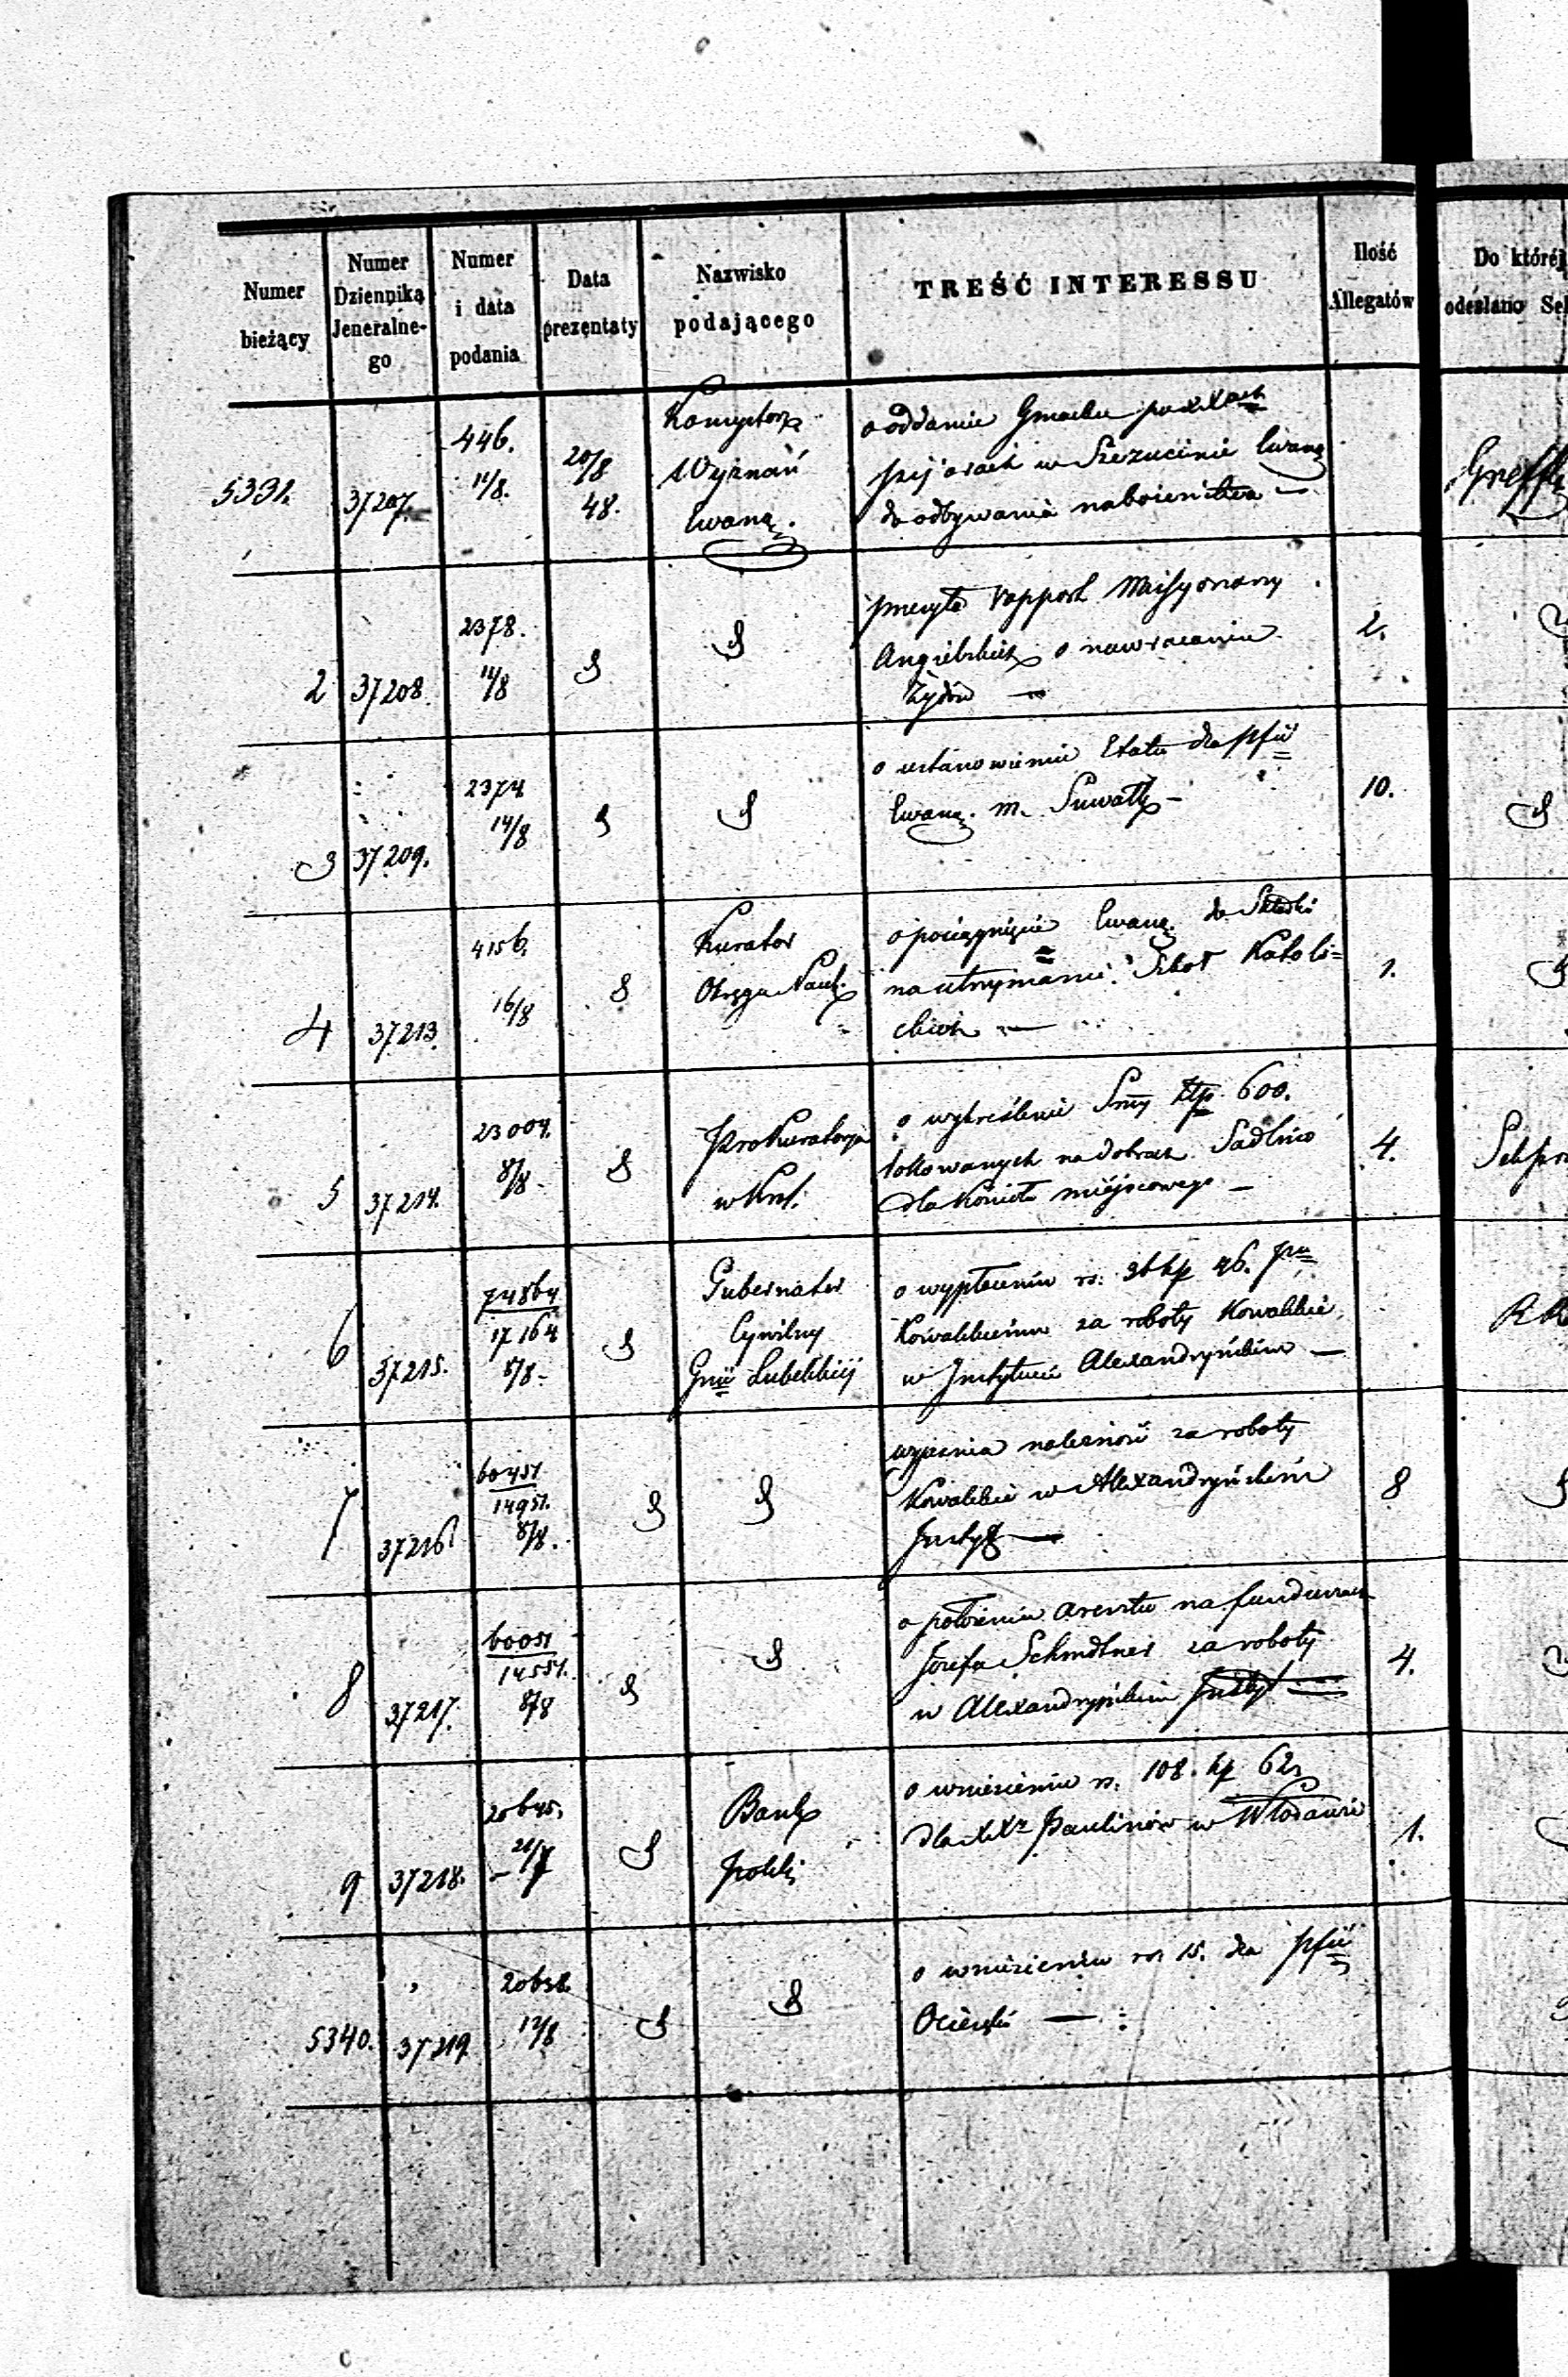 Numer bieżący
Numer Dziennika Jeneralne-go
Numer i data podania
Data prezentaty
Nazwisko podającego
TREŚĆ INTERESSU
Ilość Allegatów
Do której
odesłano
5331.
37207.
446.
11/8.
20/8
48.
Wyznań
Ewang.
o oddanie Gmachu po
w Szczucinie Ewang
do odbywania nabożeństwa —
2
37208.
2378.
14/8
rapport Missyonarzy
Angielskich o nawracaniu
Żydów —
2.
3
37209.
2374
14/8
o ustanowienie Etatu dla pfii
Ewang. m. Suwałk —
10.
4
37213.
4156.
16/8
Kurator
Okręgu Nauk.
o pociągnięcie Ewang. do Składki
na utrzymanie Szkół Katoli=
ckich —
1.
5
37214.
23004.
8/8 -
Prokuratorya
w Król.
o wykreślenie Summy Złp. 600.
lokowanych na dobrach
dla Kościoła miejscowego —
4.
6
37215.
74864
17164
8/8 -
Gubernator
Cywilny
Gnii Lubelskiéj
o wypłacenie rs. kp 46.
Kowalskiemu za roboty Kowalskie
w Instytucie Alexandryńskim —
7
37216
8/8.
należność za roboty
Kowalskie w Alexandryńskim
Instyt —
8
8
37217.
8/8
o położeniu aresztu na funduszach
Józefa za roboty
w Alexandryńskim Instyt —
4.
9
37218.
20645.
21/7
Bank
Polski
o wniesieniu rs. 108. kp 62
dla XXy Paulinów w Włodawie
1.
5340.
37219
20638.
12/8
o wniesieniu rs. 15. dla pfii